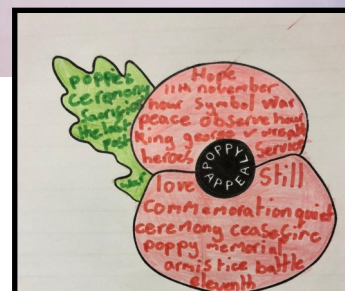 poppies
ceremony
sacrifice
the last
post
war
Hope
11th november
hour symbol war
peace observe hour
king george v wreath
heroes
service
POPPY
APPEAL
love
still
commemoration quiet
ceremony ceasefire
poppy memorial
armistice battle
eleventh